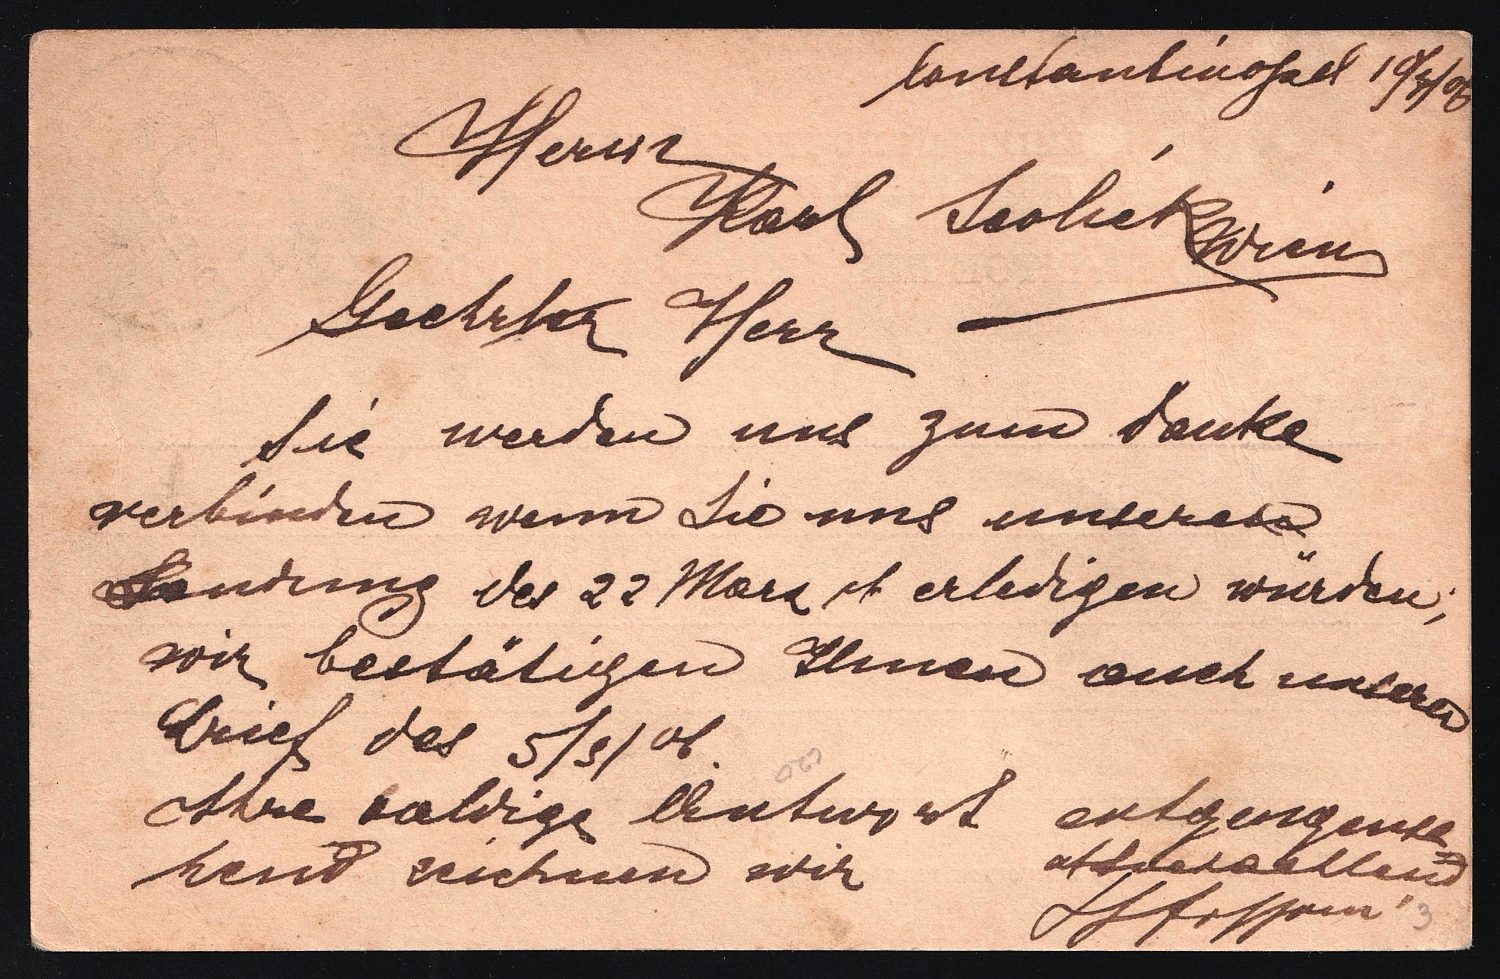 Constantinopel 19/
Herrn
Karl
Wien
Geehrter Herr
Sie werden uns zum danke
verbinden wenn Sie uns unsere
Sendung des 22 Marz erledigen würden;
wir bestätigen Ihnen auch unseren
Brief des 5/3/06
Ihre baldige Antwort entgegense=
hend zeichnen wir